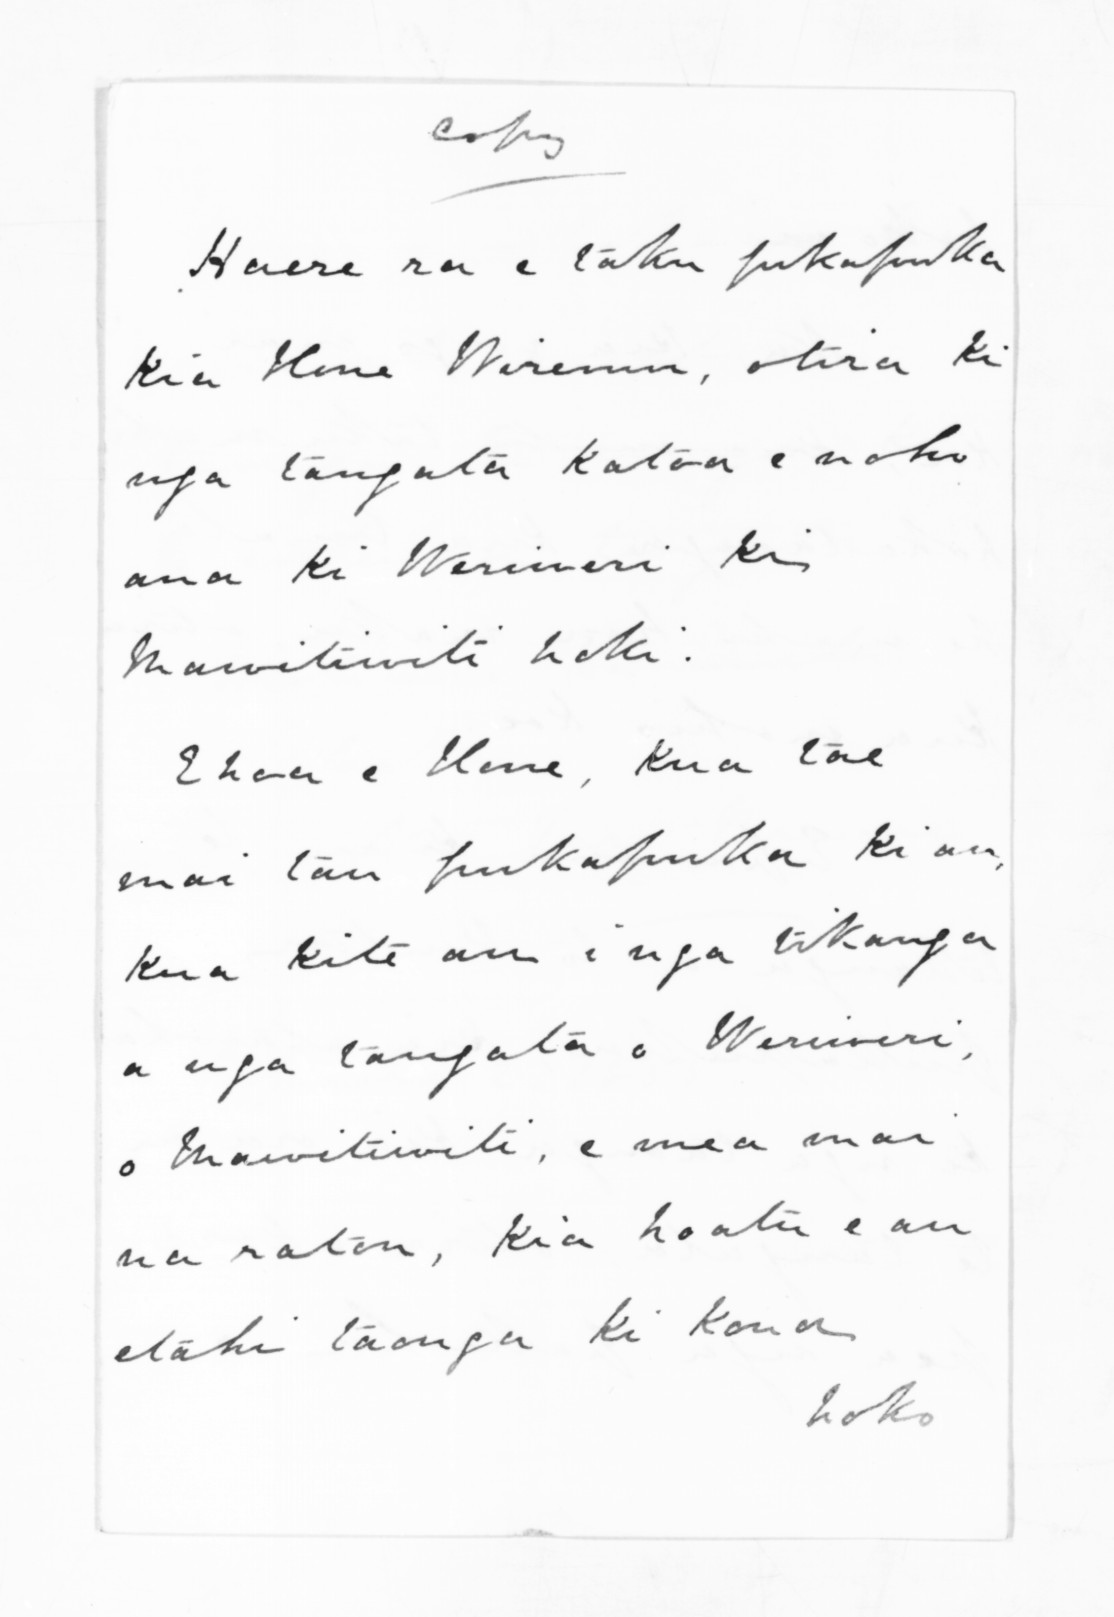 copy
Haere ra e taku pukapuka
Kia Hone Wiremu, otira ki
nga tangata katoa e noho
ana ki Weriweri ki
Mawitiwiti hoki.
Ehoa e Hone, Kua tae
mai tau pukapuka ki au,
Kua kite au i nga tikanga
a nga tangata o Weriweri,
o Mawitiwiti, e mea mai
na ratou, Kia hoatu e au
etahi taonga ki kona
hoko